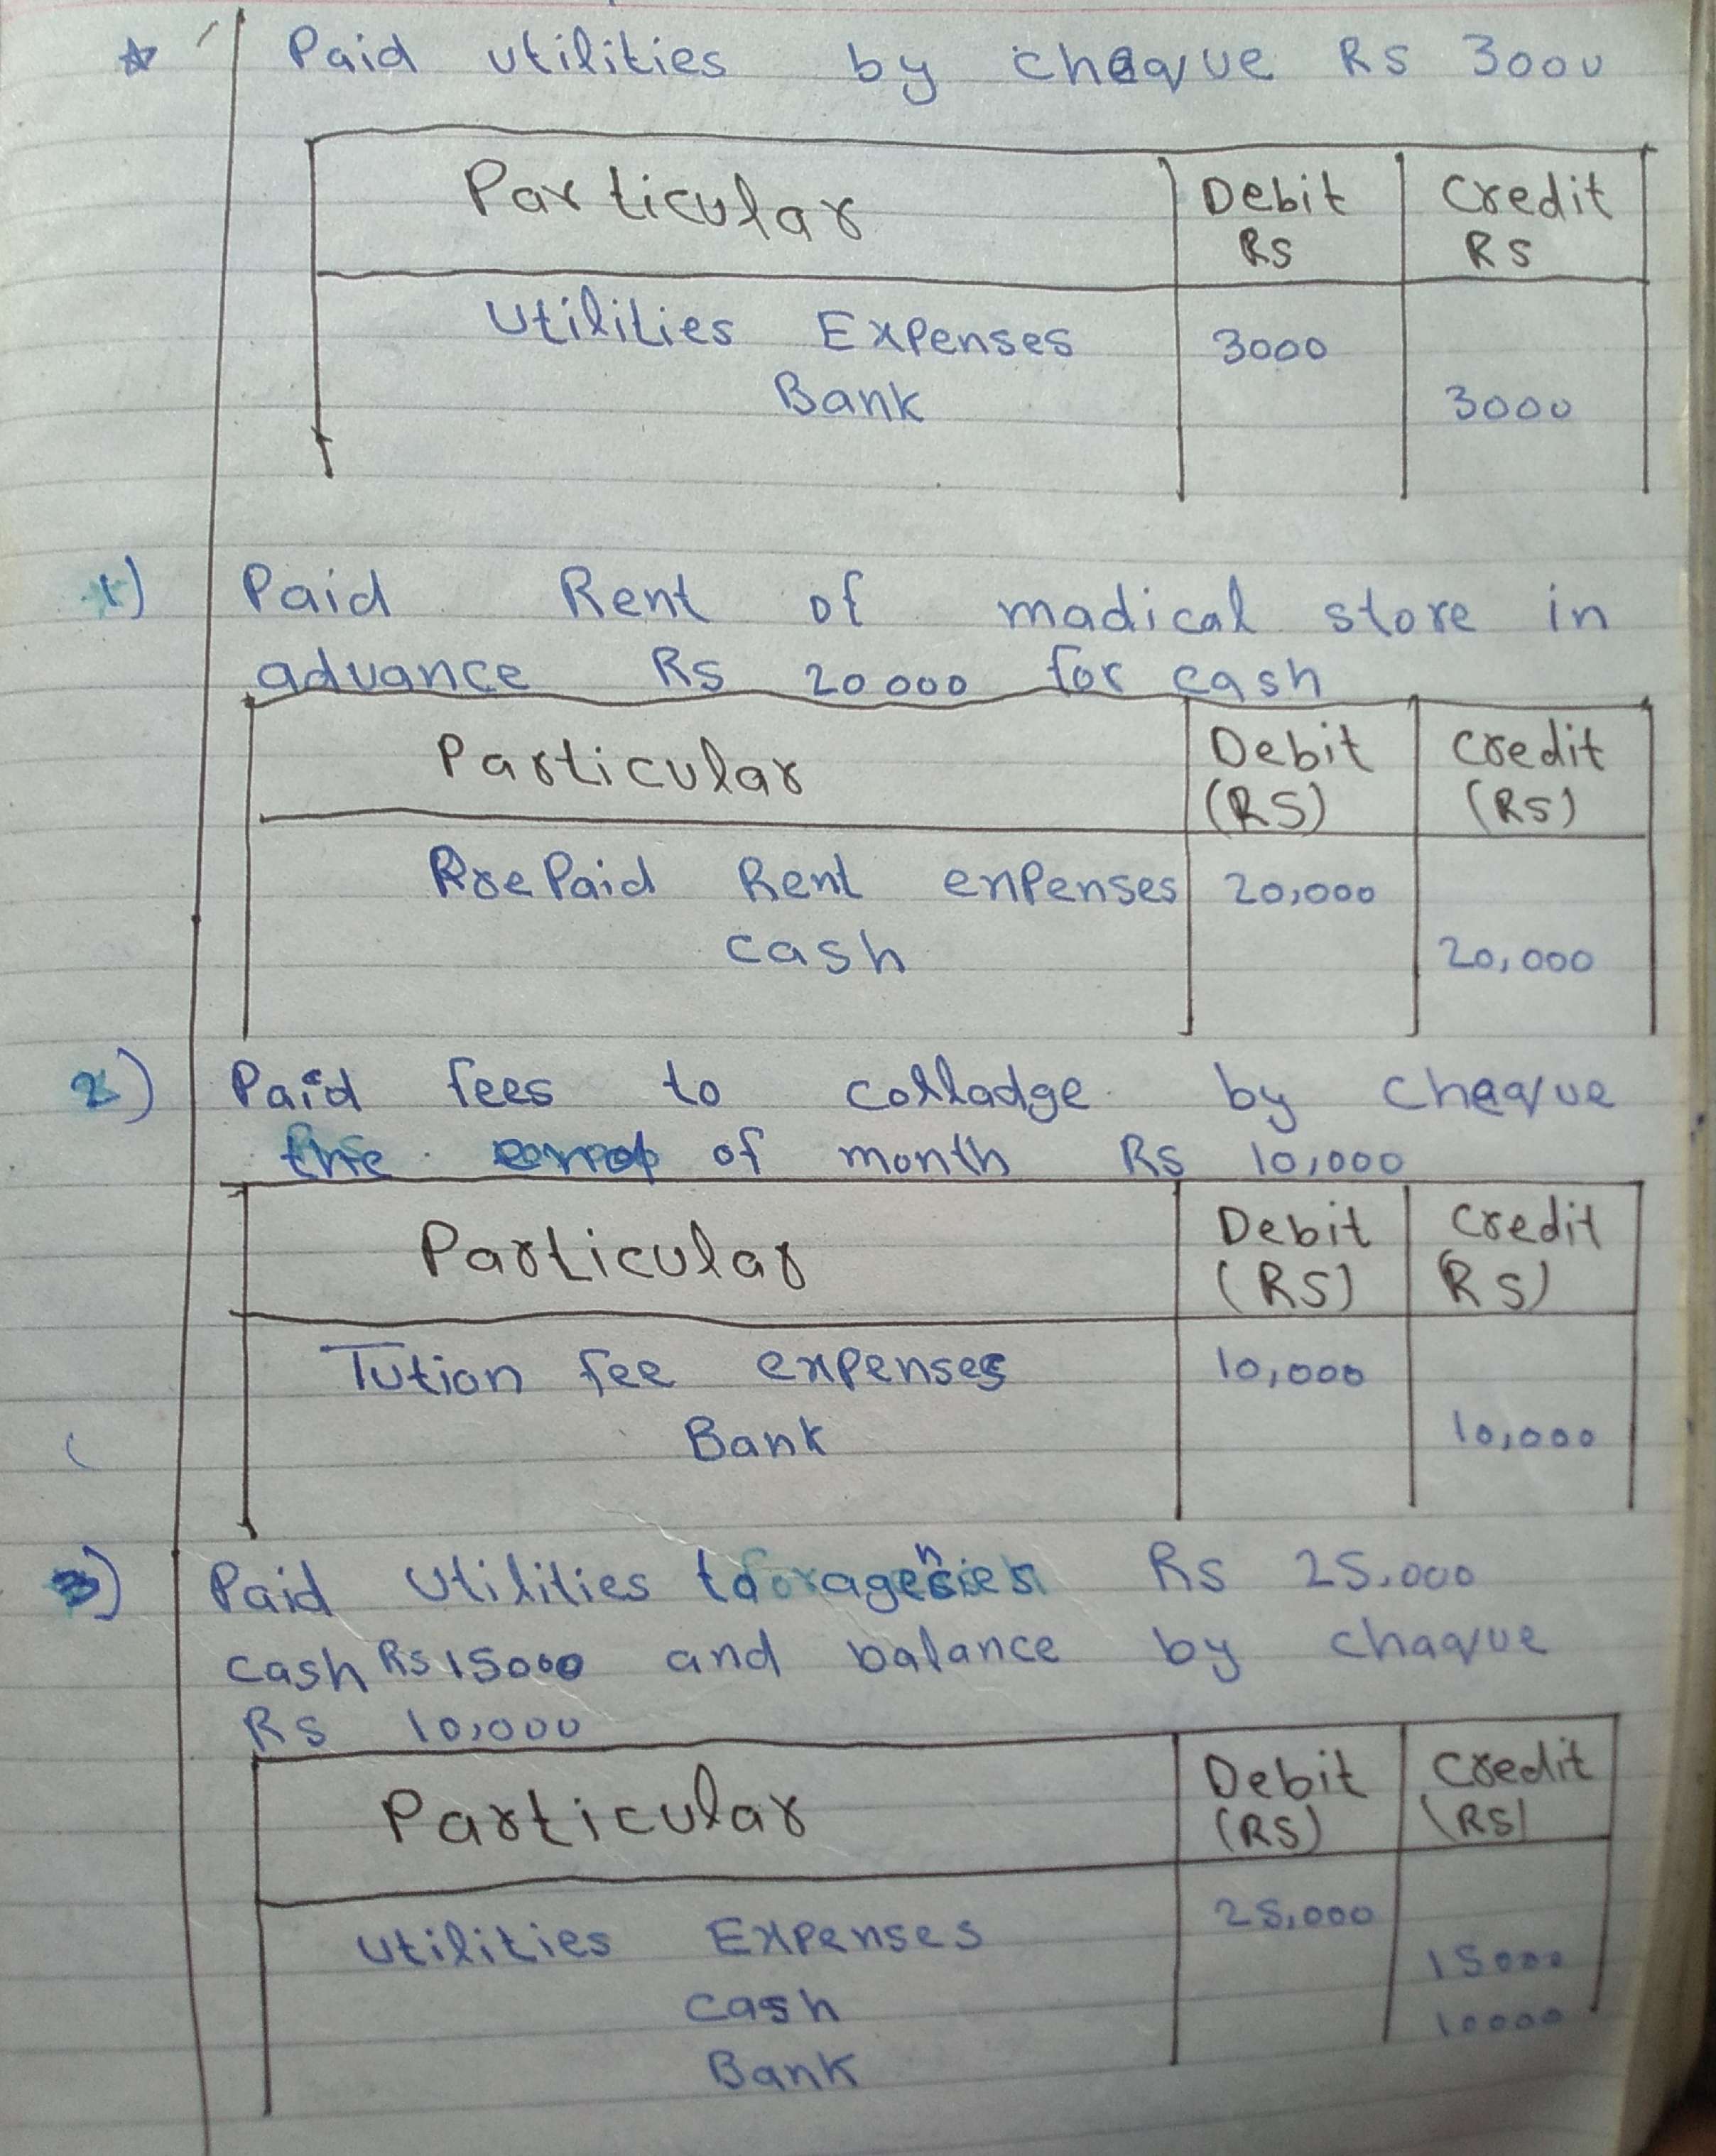 Paid utilities by cheque Rs 3000
Particular Debit Credit
Rs Rs
Utilities Expenses 3000
Bank 3000
1) Paid Rent of madical store in
advance Rs 20000 for cash
Particular Debit Credit
(RS) (RS)
PrePaid Rent enpenses 20,000
cash 20,000
2) Paid fees to colladge by cheque
the of month Rs 10,000
Particular Debit Credit
(RS) (RS)
Tution fee expenses 10,000
Bank 10,000
3) Paid Utilities Rs 25,000
cash Rs 15000 and balance by chaque
Rs 10,000
Particular Debit Credit
(RS) (RS)
Utilities Expenses 25,000
cash 15000
Bank 10000